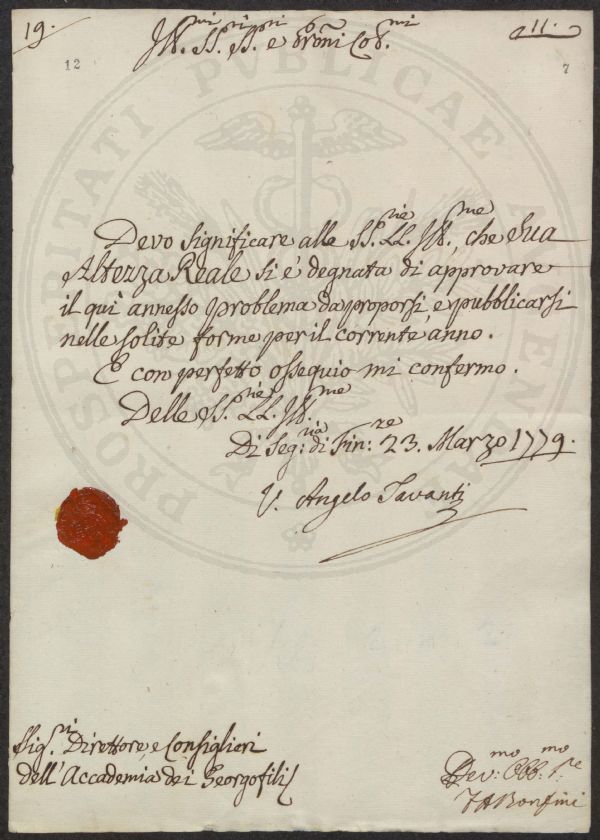 19.
11.
Ill.mi SS.ri SS.ri e Proñi Col.mi
12
7
PROSPERITATI PVBLICAE AVGENDAE
Devo significare alle SS.rie LL. Ill.me, che Sua
Altezza Reale si è degnata di approvare
il quì annesso problema da proporsi, e pubblicarsi
nelle solite forme per il corrente anno.
E con perfetto ossequio mi confermo.
Delle SS.rie LL. Ill.me
Di Seg:ria di Fin:re 23. Marzo 1779.
V. Angelo Tavanti
Sig.ri Direttore, e Consiglieri
dell'Accademia dei Georgofili
Dev:mo Obb:mo S.re